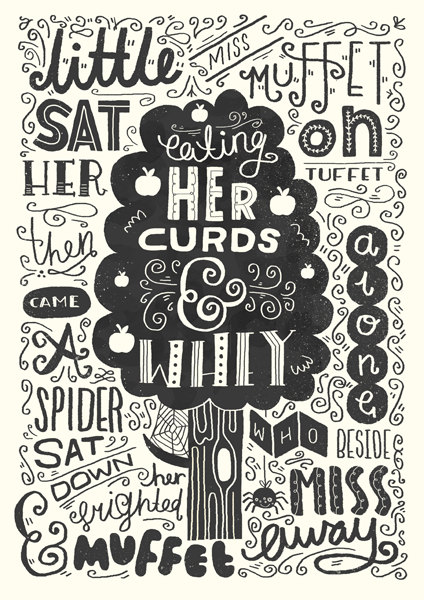 little MISS MUFFET
SAT on
HER TUFFET
eating
HER
CURDS
&
WHEY
alone
then
CAME
A
SPIDER
WHO
SAT
DOWN
BESIDE
her
& frighted
MISS
MUFFET
away